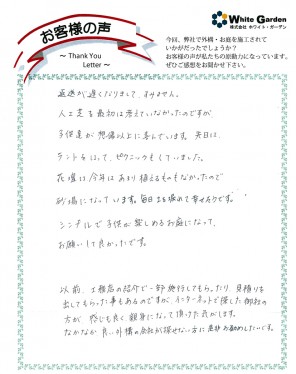 お客様の声
～ Thank You
Letter ～
White Garden
株式会社 ホワイト・ガーデン
今回、弊社で外構・お庭を施工されて
いかがだったでしょうか？
お客様の声が私たちの原動力になっています。
ぜひご感想をお聞かせ下さい。
返送が遅くなりまして、すみません。
人工芝も最初は考えていなかったのですが、
子供達が想像以上に喜んでいます。先日は、
テントをはって、ピクニックもしていました。
花壇は今年はあまり植えるものもなかったので
砂場になっています。毎日土を
シンプルで子供が楽しめるお庭になって、
お願いして良かったです。
以前、工務店の紹介で一部施行してもらったり、見積りを
出してもらった事もあるのですが、インターネットで探した御社の
方が感じも良く親身になって頂けた気がします。
なかなか良い外構の会社が探せない方に是非お勧めしたいです。